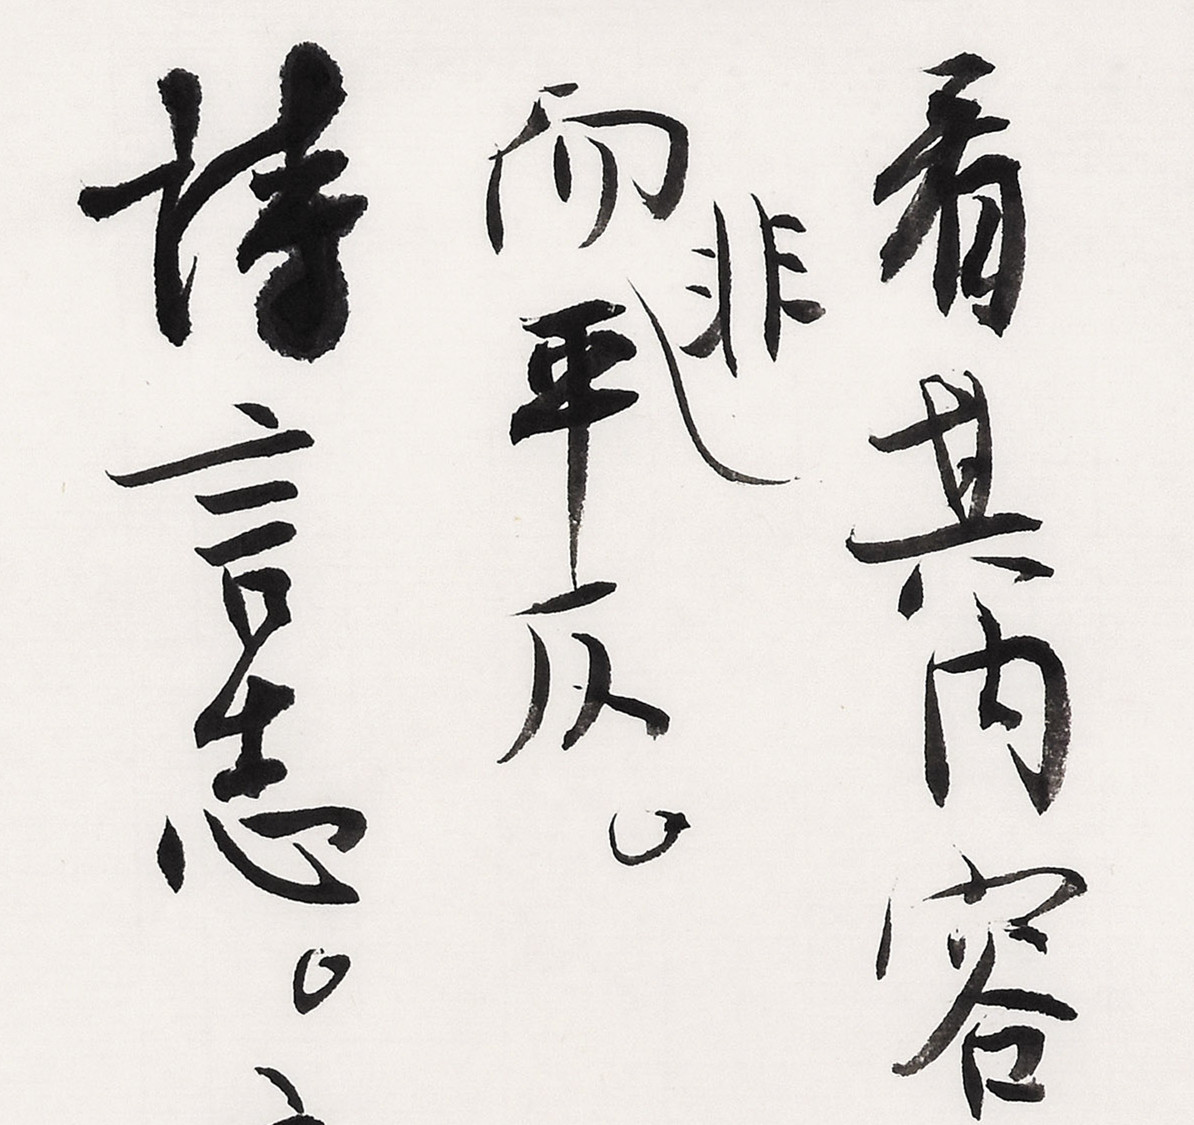 看其内容
而非平仄。
诗言志。